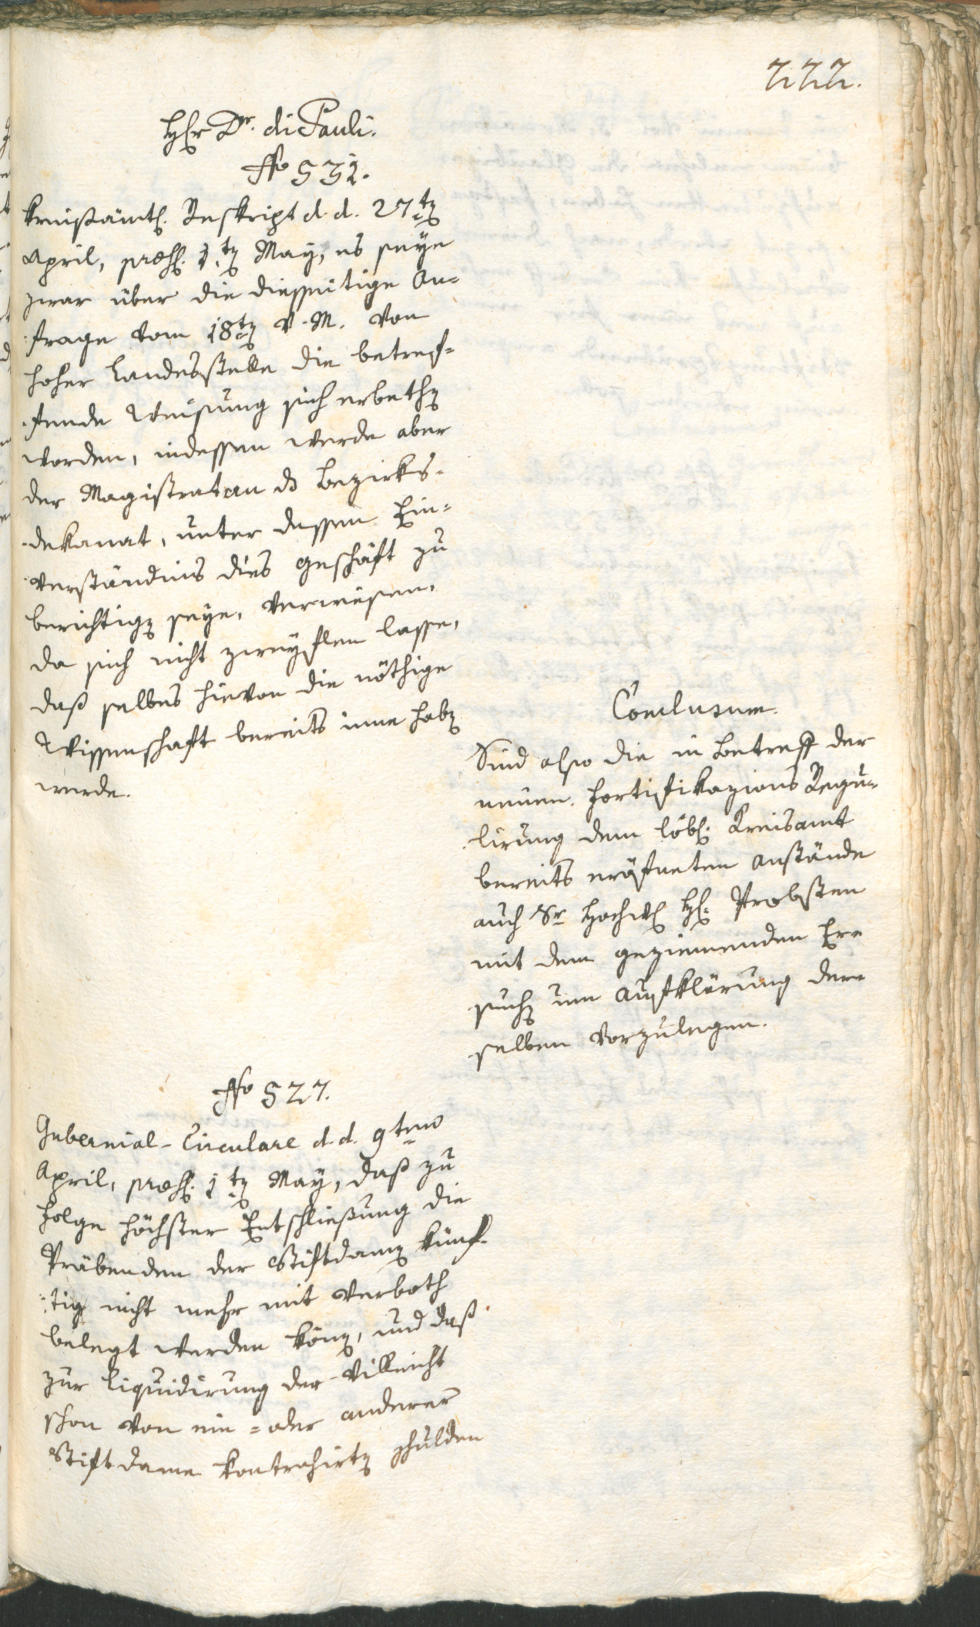 777.
H[err] Dr. di Pauli.
No 531.
Kreißämtl. Reskript d. d. 27tn
April, præs. 1.tn May, es seye
zwar über die diesseitige An=
frage vom 18tn v. M. von
hoher Landesstelle die betref=
fende Weisung sich erbethen
worden, indessen werde aber
der Magistrat an das Bezirks=
dekanat, unter dessen Ein=
verständnis dies Geschäft zu
berichtigen seye, verwiesen,
da sich nicht zweyflen lasse,
daß selbes hievon die nöthige
Wissenschaft bereits inne haben
werde.
Conclusum.
Sind also die in Betreff der
neuen Fortifikazions Regu=
lirung dem löbl. Kreisamt
bereits eröfneten Anstände
auch Sr Hochw. H. Probsten
mit dem geziemenden Er=
suchen um Aufklärung der=
selben vorzulegen.
No 527.
Gubernial-Circulare d. d. 9teno
April, præs. 1tn May, daß zu
Folge höchster Entschließung die
Präbenden der Stiftdamen künf=
tig nicht mehr mit Verboth
belegt werden können, und daß
zur Liquidirung der villeicht
schon von ein= oder anderer
Stiftdame kontrahirten Schulden